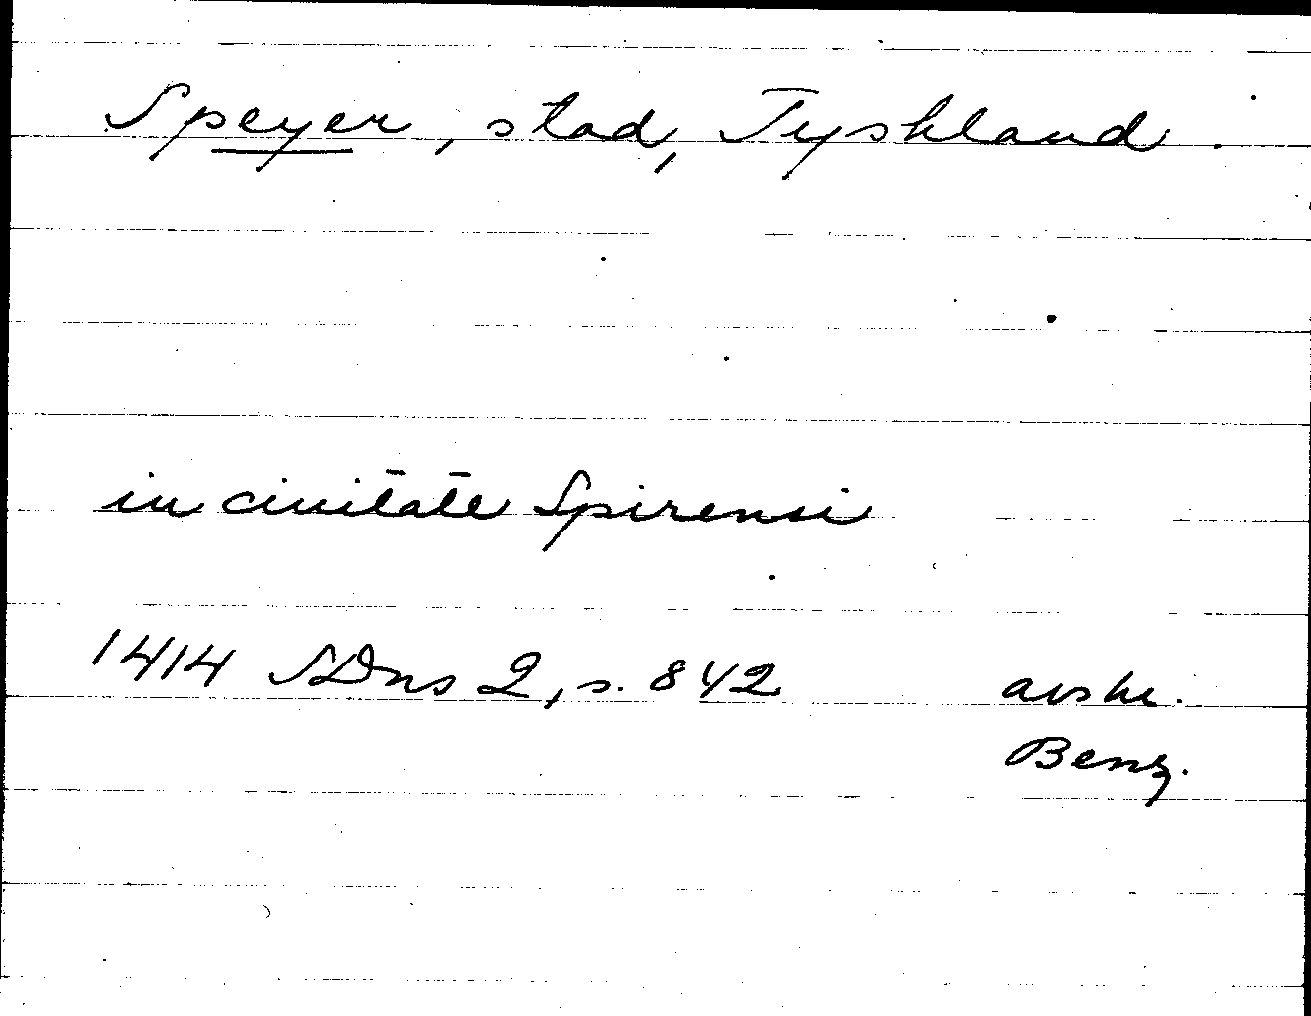 Speyer, stad, Tyskland.
in ciuitate Spirensi
1414 SDns 2, s. 842 avskr.
Benz.